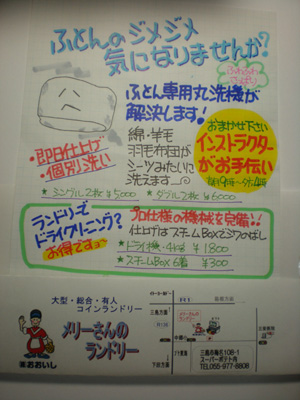 ふとんのジメジメ
気になりませんか?
ふとん専用丸洗機が
解決します!
・即日仕上げ
・個別洗い
綿・羊毛
羽毛布団が
シーツみたいに
洗えます
おまかせ下さい
インストラクター
がお手伝い
★シングル2枚 ¥5000
★ダブル2枚 ¥6000
ランドリーで
ドライクリーニング?
お得です
プロ仕様の機械を完備!
仕上げはスチームBoxでシワのばし
★ドライ機・4kg ¥1800
★スチームBox 6着 ¥300
大型・総合・有人
コインランドリー
メリーさんの
ランドリー
㈱おおいし
三島方面
下田方面
TEL055-977-8808